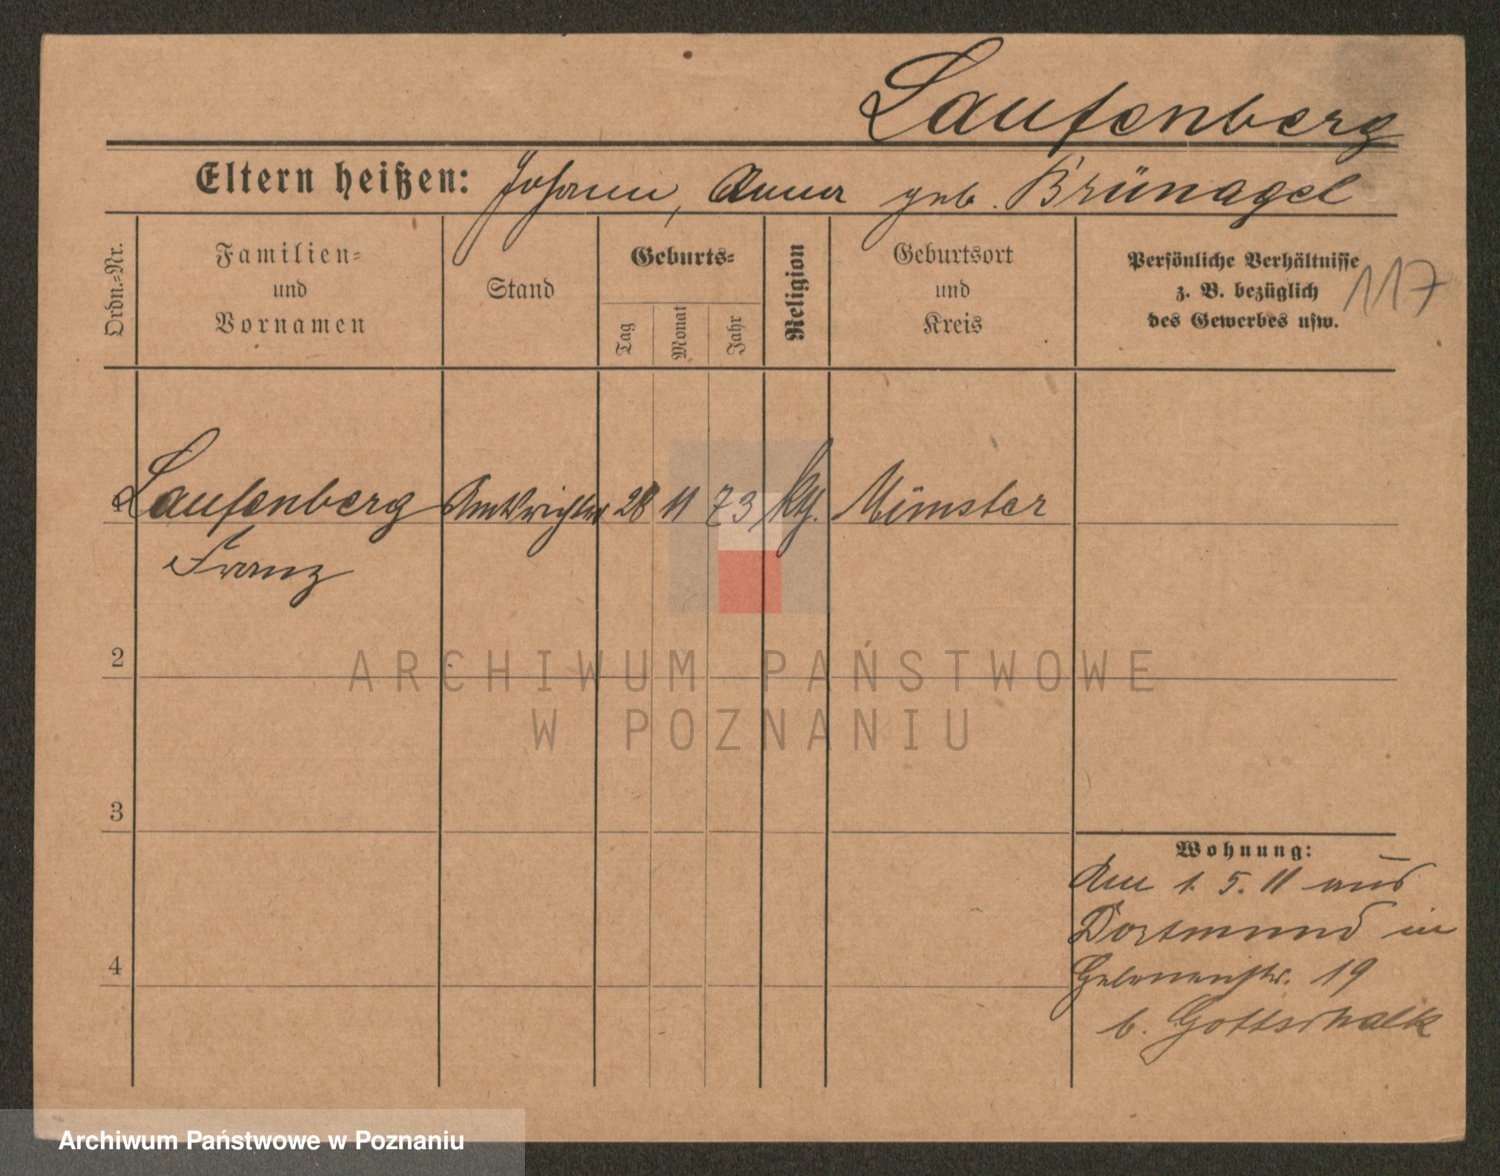 Laufenberg
Eltern heißen: Johann, Anna geb. Brünagel
Ordn.-Nr.
Familien-
und
Vornamen
Stand
Geburts-
Tag
Monat
Jahr
Religion
Geburtsort
und
Kreis
Persönliche Verhältnisse
z. B. bezüglich
des Gewerbes usw.
117
Laufenberg Amtsrichter 28 11 73 kth. Münster
Franz
2
3
4
Wohnung:
Am 1. 5. 11 aus
Dortmund in
19
b. Gottschalk
ARCHIWUM PAŃSTWOWE
W POZNANIU
Archiwum Państwowe w Poznaniu